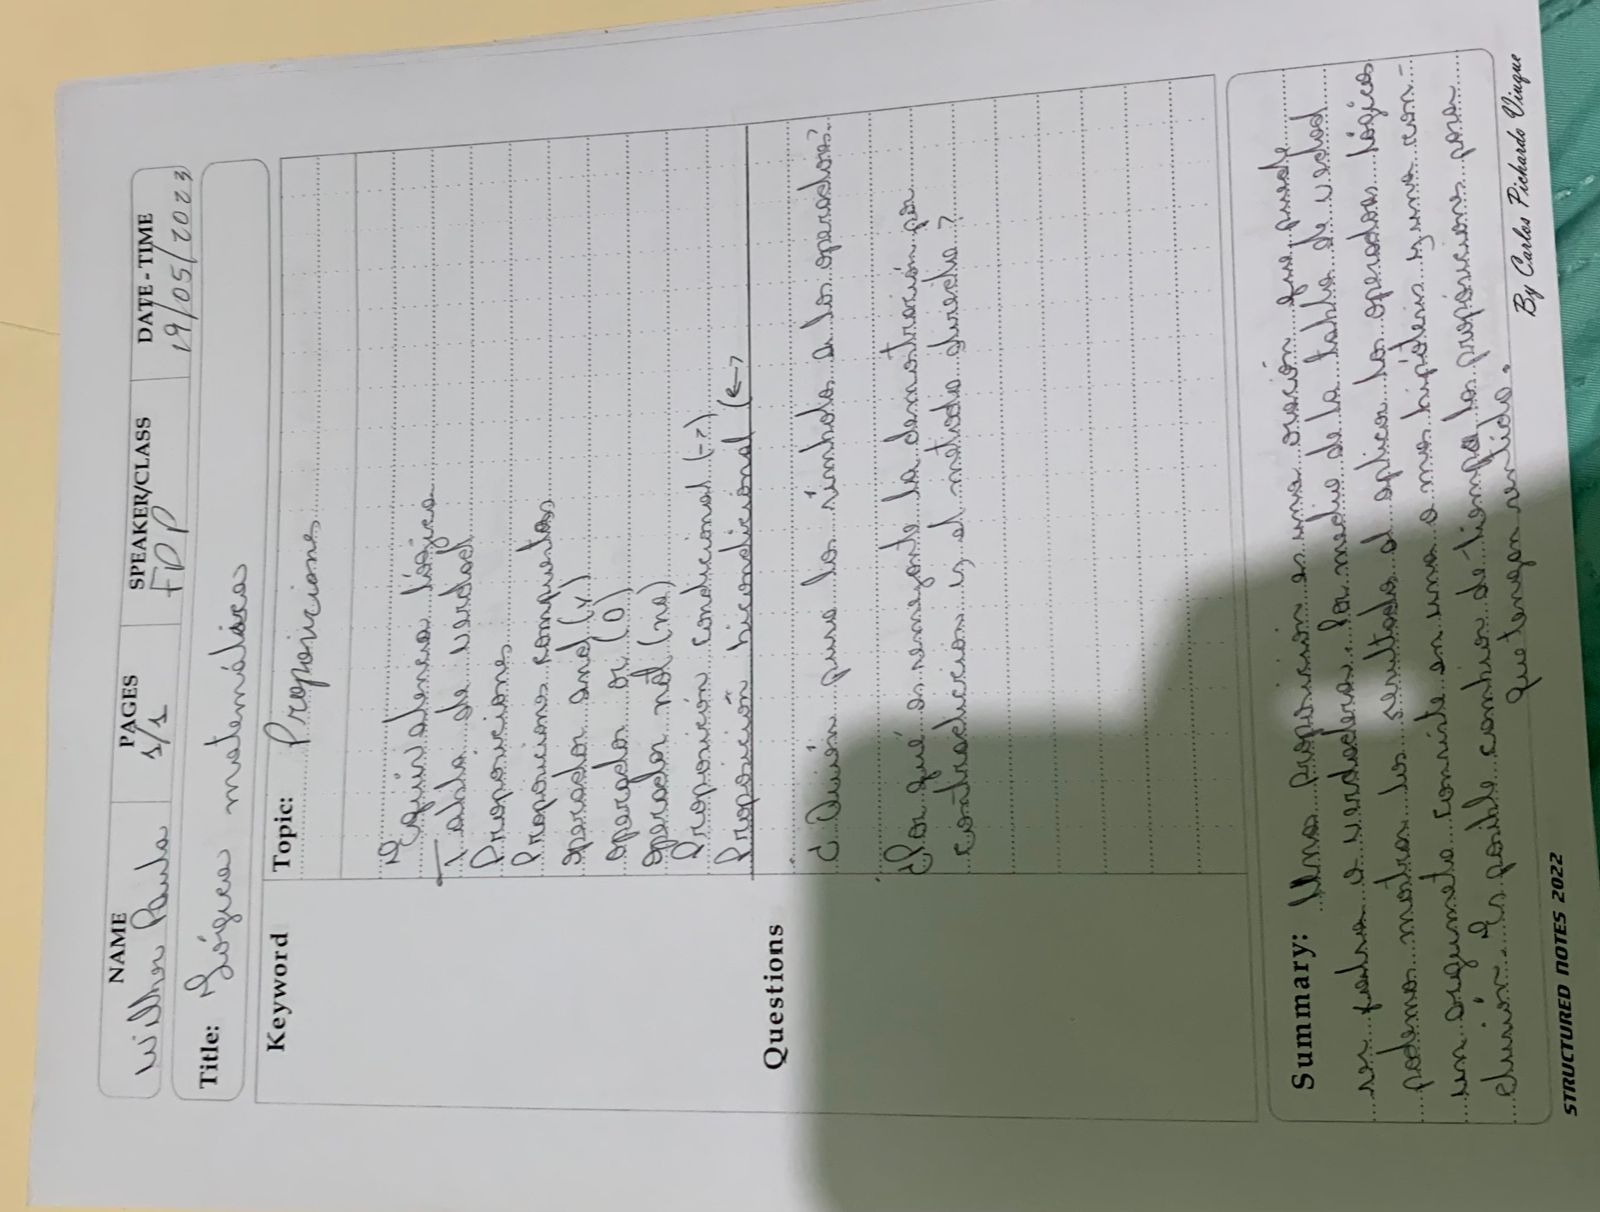 NAME
PAGES
SPEAKER/CLASS
DATE - TIME
Willber Paula
1/1
FDP
19/05/2023
Title: Lógica matemática
Keyword
Topic: Proposiciones
Equivalencia lógica
Tabla de verdad
Proposiciones
Proposiciones compuestas
operador and (y)
operador or (O)
operador not (no)
Proposición condicional (->)
Proposición bicondicional (<->
Questions
¿ Quién puso los símbolos a los operadores?
¿Por qué es semejante la demostración por
contradicción y el método directo?
Summary: Una proposición es una oración que puede
ser falsa o verdadera. Por medio de la tabla de verdad
podemos mostrar los resultados al aplicar los operadores lógicos
un argumento consiste en una o mas hipótesis y una con-
clusión. Es posible cambios de tiempo las proposiciones para
que tengan sentido.
By Carlos Pichardo Viuque
STRUCTURED NOTES 2022